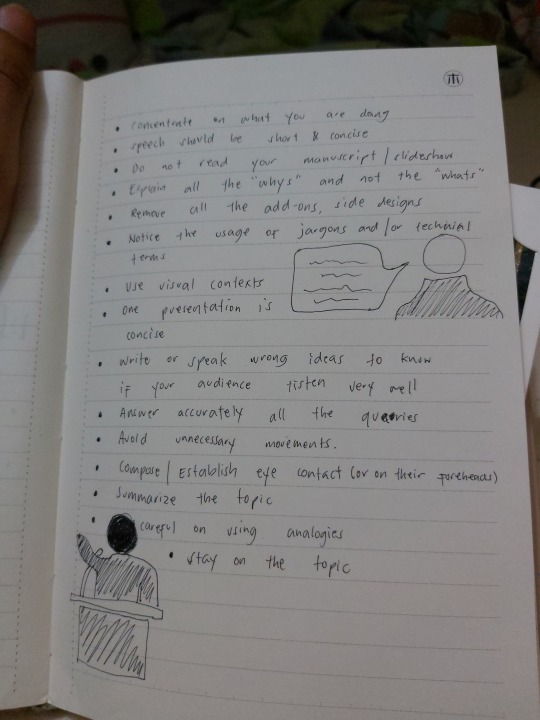 • Concentrate on what you are doing
• speech should be short & concise
• Do not read your manuscript / slideshow
• Explain all the "whys" and not the "whats"
• Remove all the add-ons, side designs
• Notice the usage of jargons and/or technical
terms
• Use visual contexts
• One presentation is
concise
• Write or speak wrong ideas to know
if your audience listen very well
• Answer accurately all the queries
• Avoid unnecessary movements.
• Compose / Establish eye contact (or on their foreheads)
• Summarize the topic
• careful on using analogies
• stay on the topic